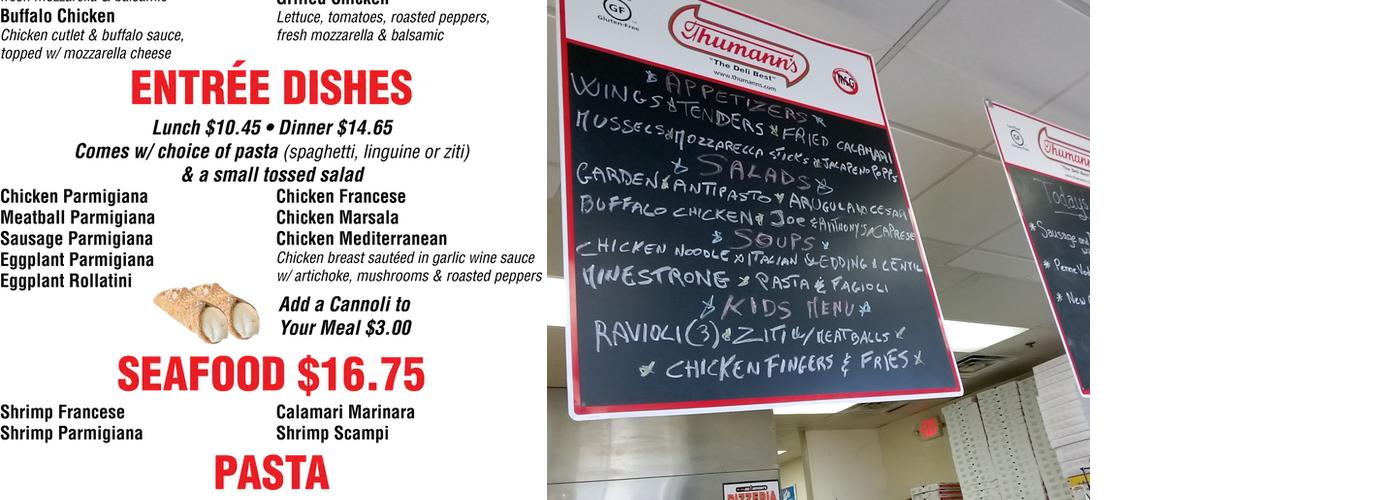 Buffalo Chicken
Chicken cutlet & buffalo sauce,
topped w/ mozzarella cheese
Lettuce, tomatoes, roasted peppers,
fresh mozzarella & balsamic
ENTRÉE DISHES
Lunch $10.45 • Dinner $14.65
Comes w/ choice of pasta (spaghetti, linguine or ziti)
& a small tossed salad
Chicken Parmigiana
Meatball Parmigiana
Sausage Parmigiana
Eggplant Parmigiana
Eggplant Rollatini
Chicken Francese
Chicken Marsala
Chicken Mediterranean
Chicken breast sautéed in garlic wine sauce
w/ artichoke, mushrooms & roasted peppers
Add a Cannoli to
Your Meal $3.00
SEAFOOD $16.75
Shrimp Francese
Shrimp Parmigiana
Calamari Marinara
Shrimp Scampi
PASTA
GF
Gluten-Free
Thumann's
"The Deli Best"
www.thumanns.com
APPETIZERS
WINGS TENDERS FRIED CALAMARI
MUSSELS MOZZARELLA STICKS JALAPENO POPPS
SALADS
GARDEN ANTIPASTO ARUGULA CESAR
BUFFALO CHICKEN JOE & ANTHONY'S CAPRESE
SOUPS
CHICKEN NOODLE ITALIAN WEDDING LENTIL
MINESTRONE PASTA & FAGIOLI
KIDS MENU
RAVIOLI(3) ZITI W/MEATBALLS
CHICKEN FINGERS & FRIES
Thumann
Todays
Sausage and
Penne Vod
New
PIZZERIA